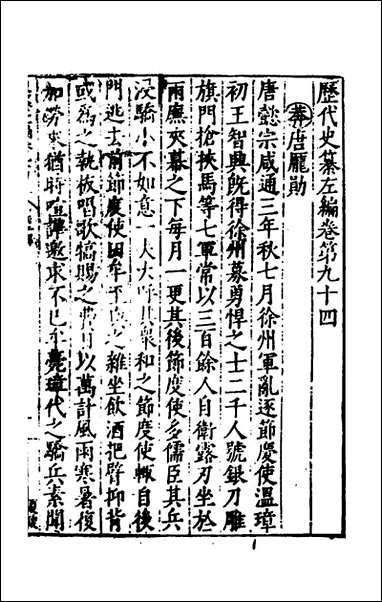 歷代史纂左編卷第九十四
莾唐龐勛
唐懿宗咸通三年秋七月徐州軍亂逐節度使溫璋
初王智興既得徐州募勇悍之士二千人號銀刀雕
旗門槍挾馬等七軍常以三百餘人自衛露刃坐於
兩廡夾幕之下每月一更其後節度使多儒臣其兵
浸驕小不如意一夫大呼其衆和之節度使輒自後
門逃去前節度使田牟至與之雜坐飲酒把臂拊背
或為之執板唱歌犒賜之費日以萬計風雨寒暑復
加勞來猶時喧譁邀求不已牟薨璋代之驕兵素聞